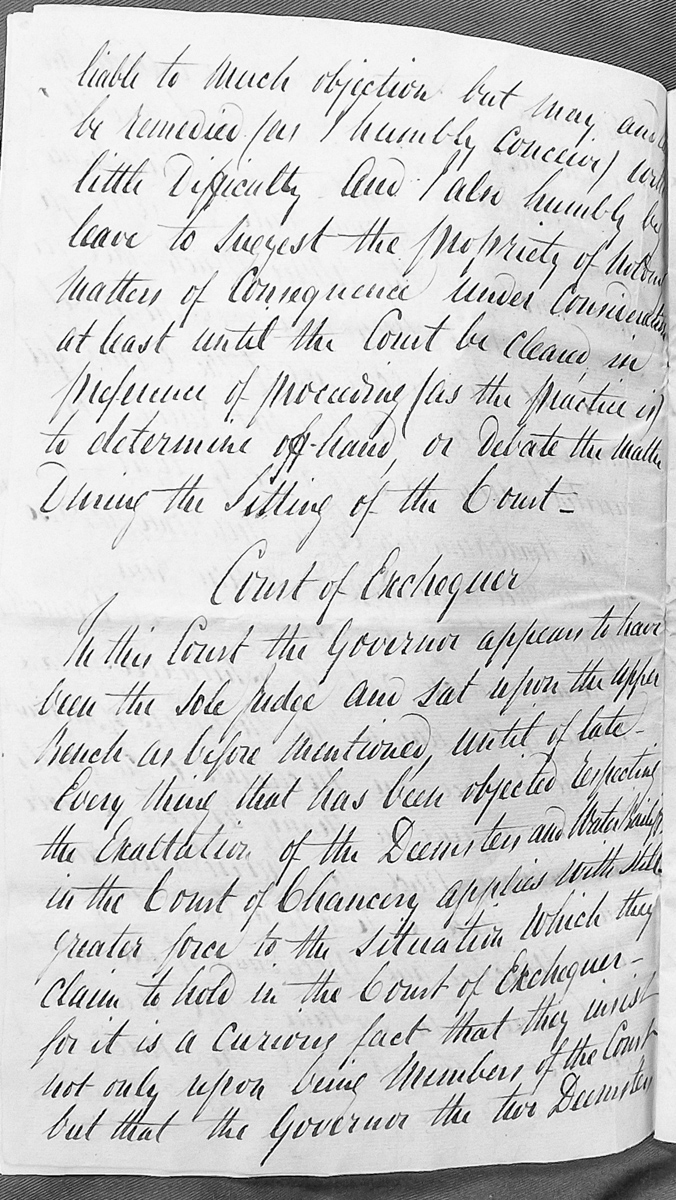 liable to Much objection but may and
be remedied (as I humbly Conceive) with
little Difficulty And I also humbly beg
leave to suggest the propriety of
Matters of Consequence under Consideration
at least until the Court be cleared, in
preference of proceeding (as the practice is)
to determine off-hand, or Debate the matter
During the Sitting of the Court _
Court of Exchequer
In this Court the Governor appears to have
been the sole Judge and sat upon the upper
Bench as before mentioned, until of late _
Every thing that has been objected respecting
the Exaltation of the Deemsters and Water Bailiff
in the Court of Chancery applies with still
greater force to the situation Which they
claim to hold in the Court of Exchequer _
for it is a curious fact that they insist
not only upon being Members of the Court
but that the Governor the two Deemsters